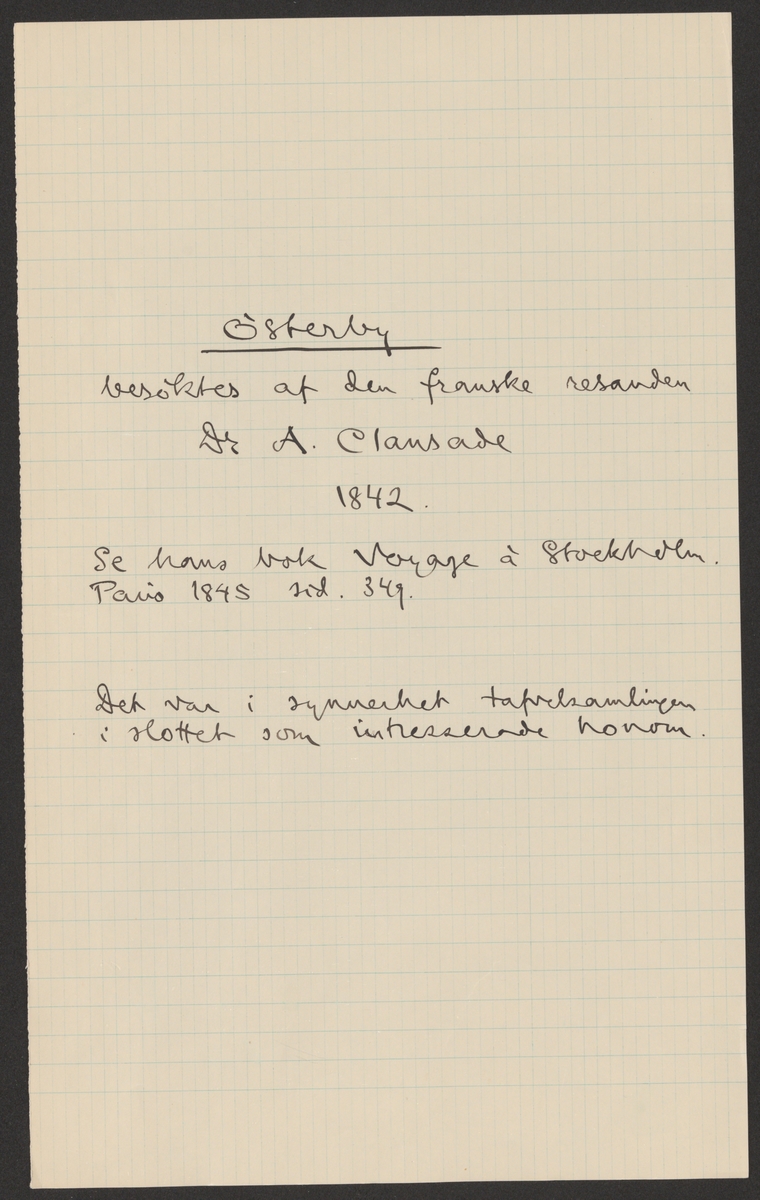 Österby
besöktes af den franske resanden
Dr A. Clausade
1842.
Se hans bok Voyage à Stockholm.
Paris 1845 sid. 349.
Det var i synnerhet tafvelsamlingen
i slottet som intresserade honom.